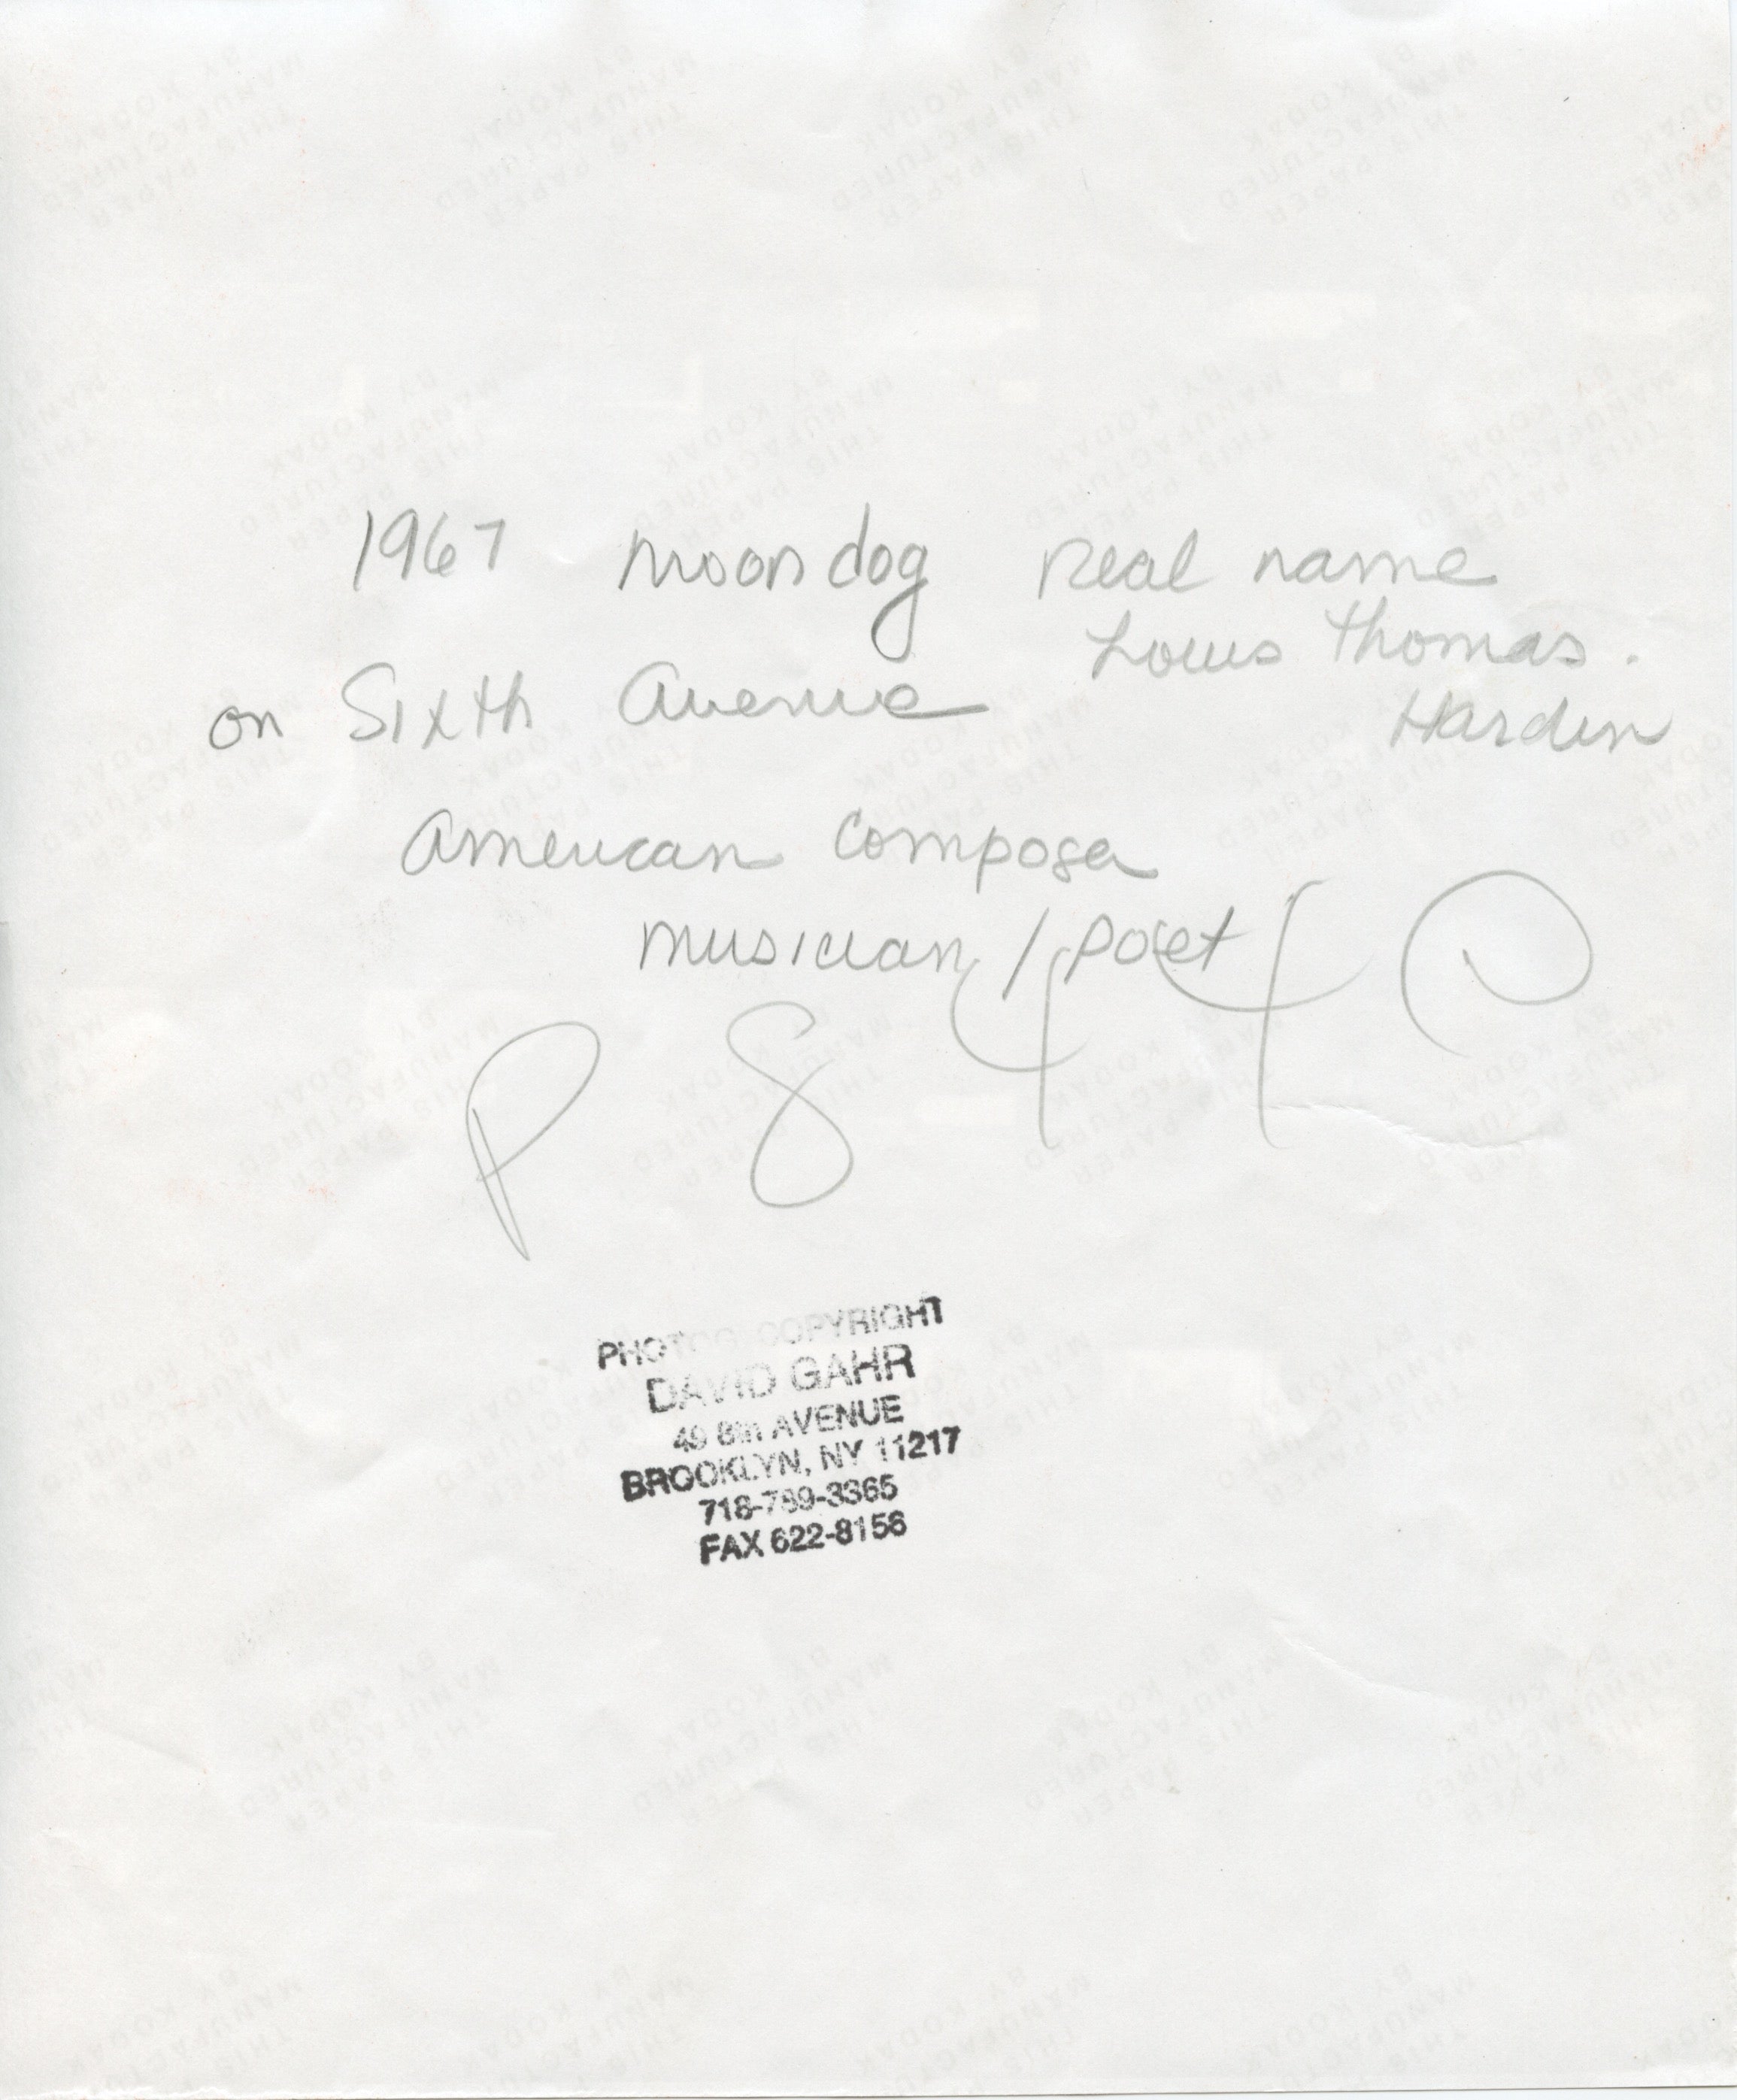 1967 Moondog Real name
Louis Thomas.
on Sixth Avenue Hardin
American Composer
musician / poet
P 8 4 4 0
PHOTOG COPYRIGHT
DAVID GAHR
49 8th AVENUE
BROOKLYN, NY 11217
718-789-3365
FAX 622-8156
THIS PAPER
MANUFACTURED
BY KODAK